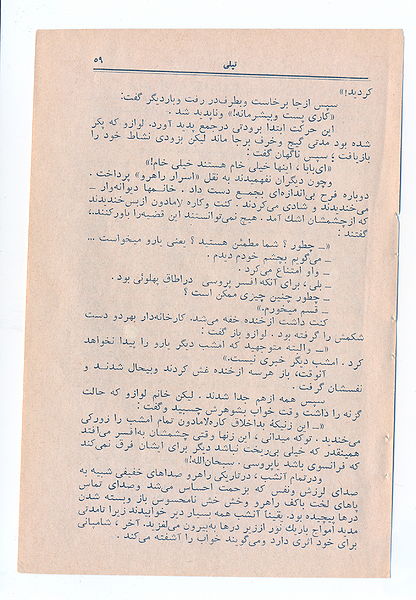 ۵۹
تپلی
کردید!»
سپس ازجا برخاست و بطرف در رفت و باردیگر گفت:
«کاری پست و بیشرمانه!» و ناپدید شد .
این حرکت ابتدا برودتی درجمع پدید آورد. لوازو که پکر
شده بود مدتی گیج و حرف برجا ماند لیکن بزودی نشاط خود را
بازیافت ؛ سپس ناگهان گفت :
«ای بابا ، اینها خیلی خام هستند خیلی خام!»
وچون دیگران نفهمیدند به نقل «اسرار راهرو» پرداخت .
دوباره فرح بی‌اندازه‌ای بجمع دست داد . خانمها دیوانه‌وار ـ
می‌خندیدند و شادی می‌کردند . کنت وکاره لامادون ازبس‌خندیدند
که ازچشمشان اشك آمد . هیچ نمی‌توانستند این قضیه‌را باورکنند،
گفتند :
«ـ چطور ؟ شما مطمئن هستید ؟ یعنی بارو میخواست ...
ـ می‌گویم بچشم خودم دیدم .
ـ واو امتناع می‌کرد .
ـ بلی ، برای آنکه افسر پروسی دراطاق پهلوئی بود .
ـ چطور چنین چیزی ممکن است ؟
ـ قسم میخورم.»
کنت داشت ازخنده خفه می‌شد. کارخانه‌دار بهردو دست
شکمش را گرفته بود . لوازو باز گفت :
«ـ والبته متوجهید که امشب دیگر بارو را پیدا نخواهد
کرد . امشب دیگر خبری نیست.»
آنوقت، باز هرسه ازخنده غش کردند وبیحال شدنـد و
نفسشان گرفت .
سپس همه ازهم جدا شدند . لیکن خانم لوازو که حالت
گزنه را داشت وقت خواب بشوهرش چسبید وگفت :
«ـ این زنیکه بداخلاق کاره‌لامادون تمام امشب را زورکی
می‌خندید . توکه میدانی ، این زنها وقتی چشمشان به‌افسر می‌افتد
همینقدر که خیلی بی‌ریخت نباشد دیگر برای ایشان فرق نمی‌کند
که فرانسوی باشد یاپروسی . سبحان‌الله!»
ودرتمام آنشب ، درتاریکی راهرو صداهای خفیفی شبیه به
صدای لرزش ونفس که بزحمت احساس می‌شد وصدای تماس
پاهای لخت باکف راهرو وخش خش نامحسوس باز وبسته شدن
درها پیچیده بود. یقیناً آنشب همه بسیار دیر خوابیدند زیرا تامدتی
مدید امواج باریك نور اززیر درها به‌بیرون می‌لغزید. آخر ، شامپانی
برای خود اثری دارد ومی‌گویند خواب را آشفته می‌کند .